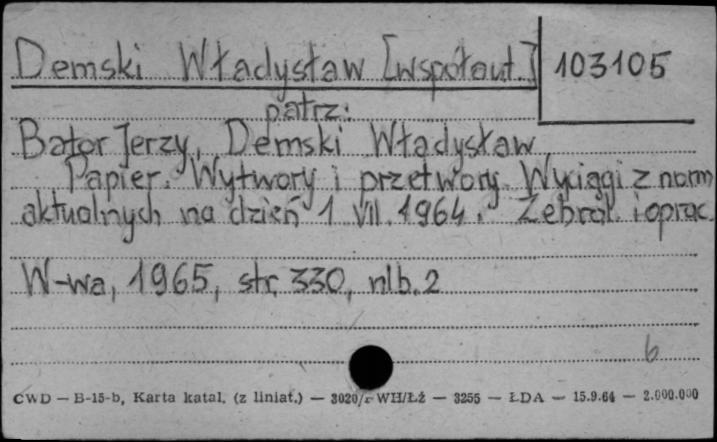 Demski Władysław [współaut.] 103105
patrz:
Bator Jerzy, Demski Władysław
Papier. Wytwory i przetwory. Wyciągi z norm
aktualnych na dzień 1 VII. 1964. Zebrał. i oprac.
W-wa, 1965, str. 330, nlb. 2
b
CWD — B-15-b, Karta katal. (z liniat.) — 3020/z WH/ŁŻ — 3255 — ŁDA — 15.9.64 — 2.000.000